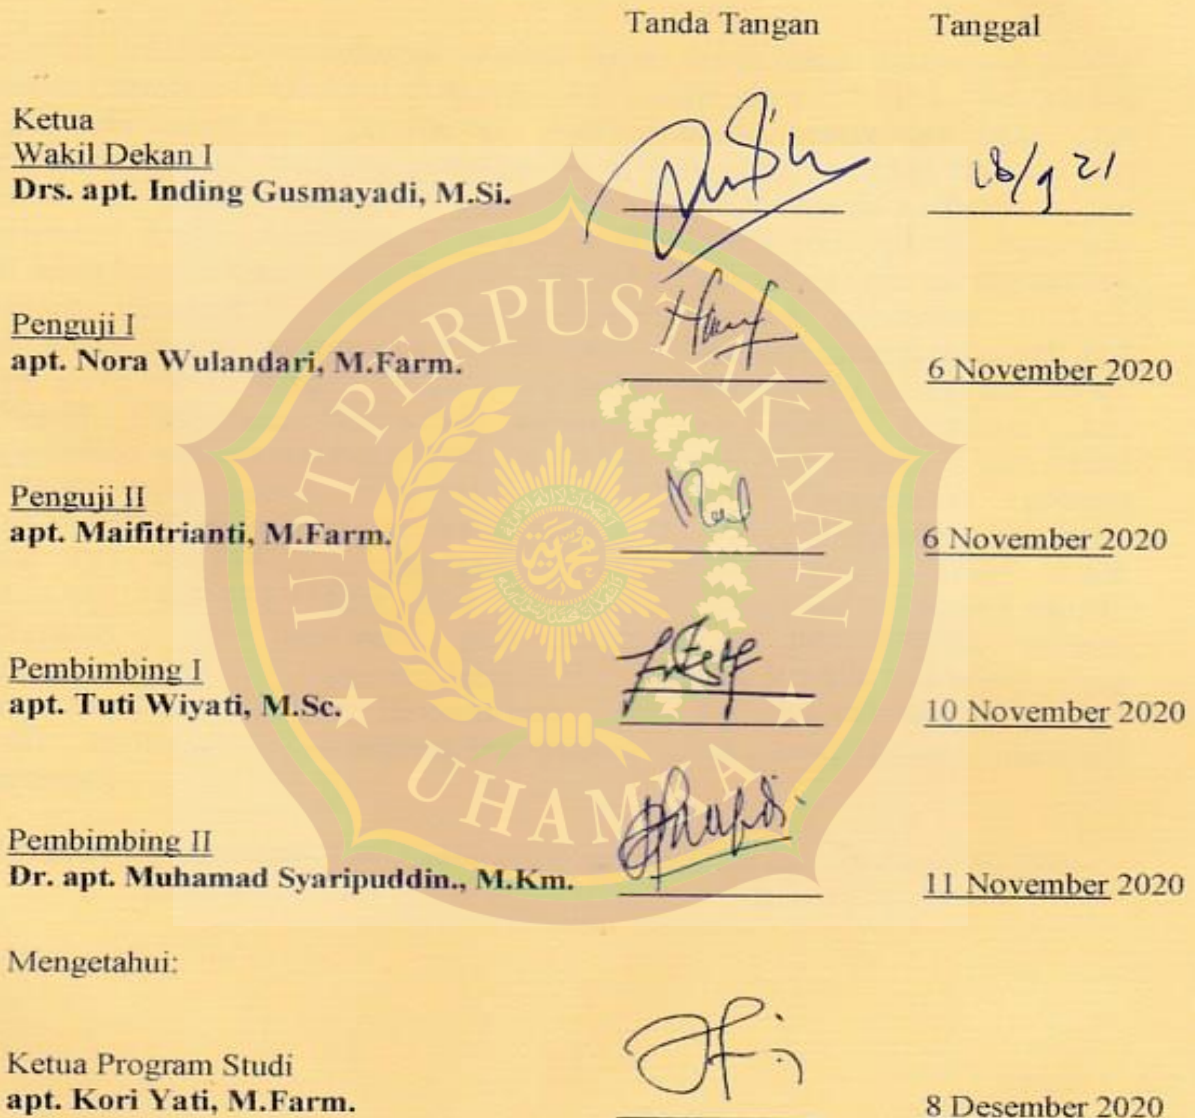 Tanda Tangan Tanggal
Ketua
Wakil Dekan I
Drs. apt. Inding Gusmayadi, M.Si.
18/9 21
Penguji I
apt. Nora Wulandari, M.Farm.
6 November 2020
Penguji II
apt. Maifitrianti, M.Farm.
6 November 2020
Pembimbing I
apt. Tuti Wiyati, M.Sc.
10 November 2020
Pembimbing II
Dr. apt. Muhamad Syaripuddin., M.Km.
11 November 2020
Mengetahui:
Ketua Program Studi
apt. Kori Yati, M.Farm.
8 Desember 2020
UPT PERPUSTAKAAN
UHAMKA